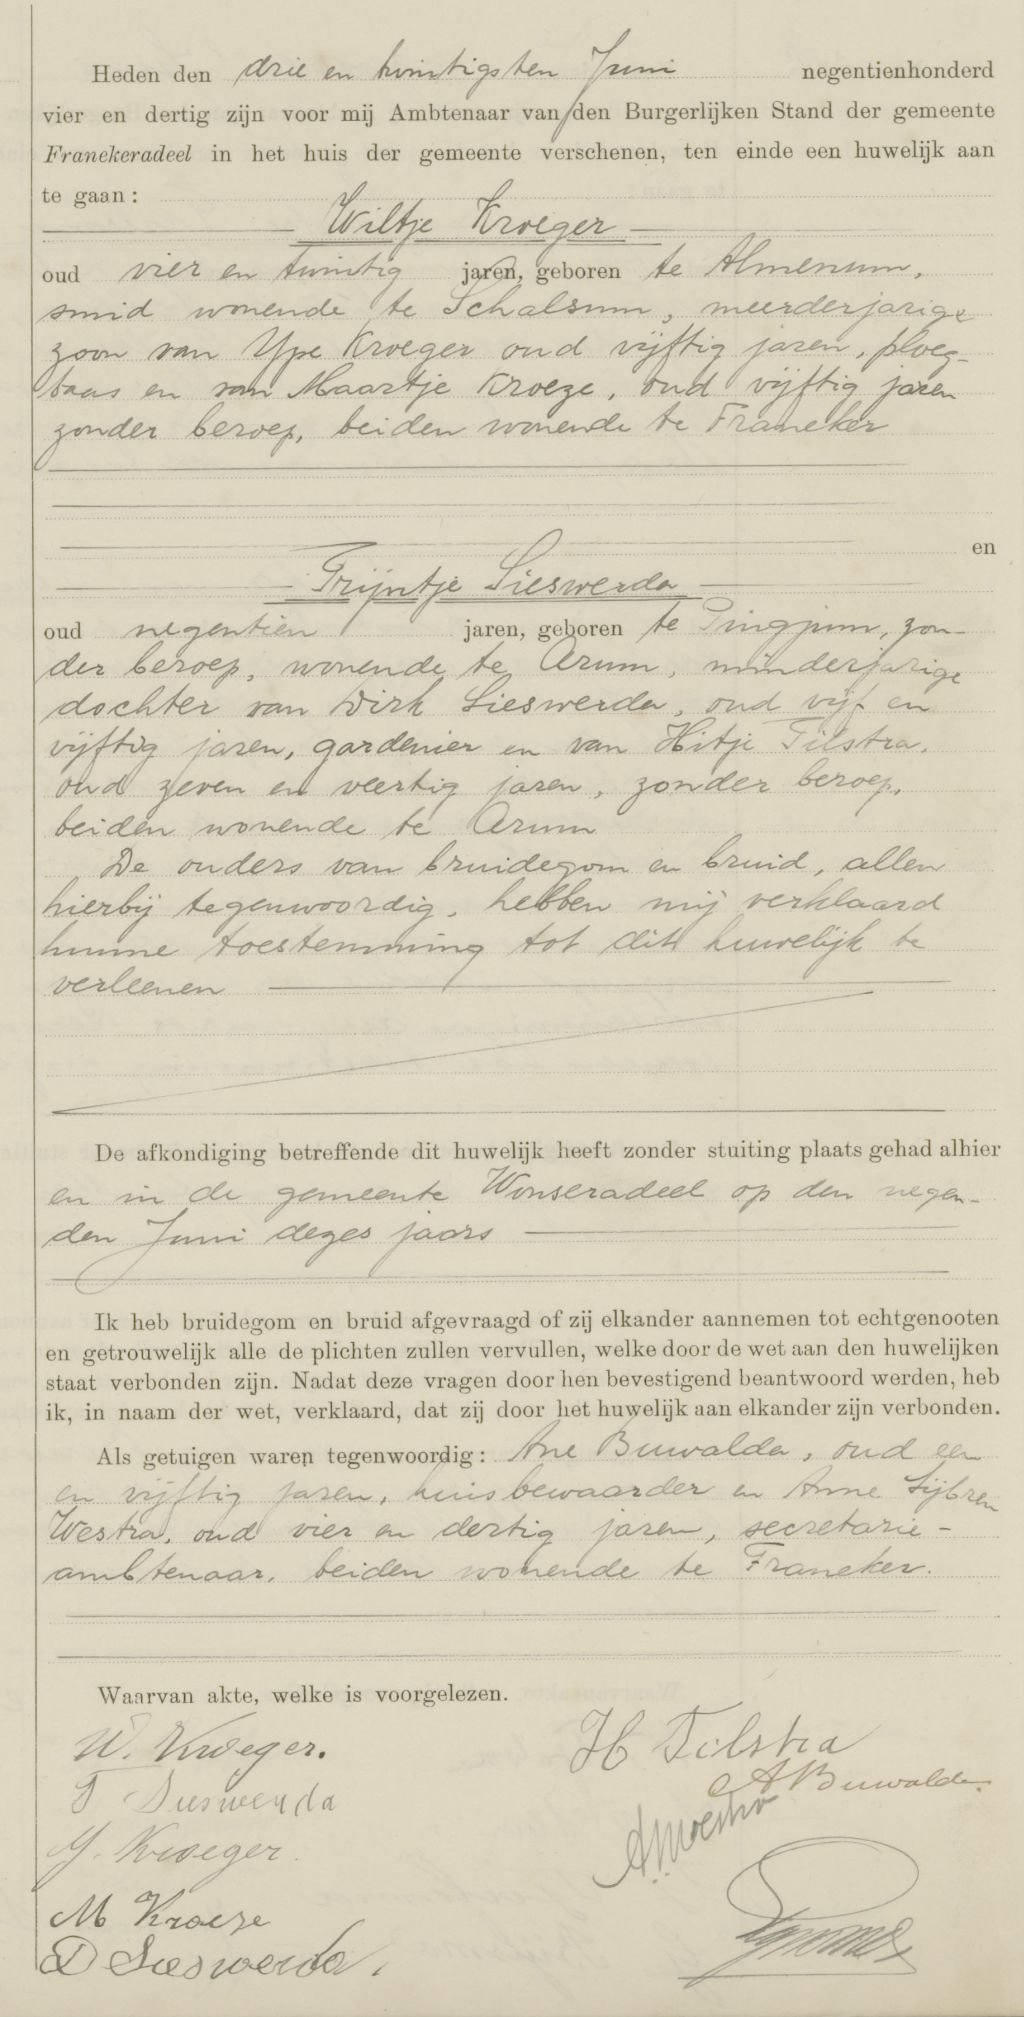 Heden den drie en twintigsten Juni negentienhonderd
vier en dertig zijn voor mij Ambtenaar van den Burgerlijken Stand der gemeente
Franekeradeel in het huis der gemeente verschenen, ten einde een huwelijk aan
te gaan:
Wiltje Kroeger
oud vier en twintig jaren, geboren te Almenum,
smid wonende te Schalsum, meerderjarige
zoon van Ype Kroeger oud vijftig jaren, ploeg-
baas en van Maartje Kroeze, oud vijftig jaren
zonder beroep, beiden wonende te Franeker
en
Trijntje Sieswerda
oud negentien jaren, geboren te Pingjum, zon-
der beroep, wonende te Arum, minderjarige
dochter van Dirk Sieswerda, oud vijf en
vijftig jaren, gardenier en van Hitje Tilstra,
oud zeven en veertig jaren, zonder beroep,
beiden wonende te Arum
De ouders van bruidegom en bruid, allen
hierbij tegenwoordig, hebben mij verklaard
hunne toestemming tot dit huwelijk te
verleenen
De afkondiging betreffende dit huwelijk heeft zonder stuiting plaats gehad alhier
en in de gemeente Wonseradeel op den negen-
den Juni dezes jaars
Ik heb bruidegom en bruid afgevraagd of zij elkander aannemen tot echtgenooten
en getrouwelijk alle de plichten zullen vervullen, welke door de wet aan den huwelijken
staat verbonden zijn. Nadat deze vragen door hen bevestigend beantwoord werden, heb
ik, in naam der wet, verklaard, dat zij door het huwelijk aan elkander zijn verbonden.
Als getuigen waren tegenwoordig: Ane Buwalda, oud een
en vijftig jaren, huisbewaarder en Anne Sijbren
Westra, oud vier en dertig jaren, secretarie-
ambtenaar, beiden wonende te Franeker.
Waarvan akte, welke is voorgelezen.
W. Kroeger.
T Sieswerda
Y. Kroeger.
M Kroeze
D Sieswerda.
H Tilstra
A Buwalda.